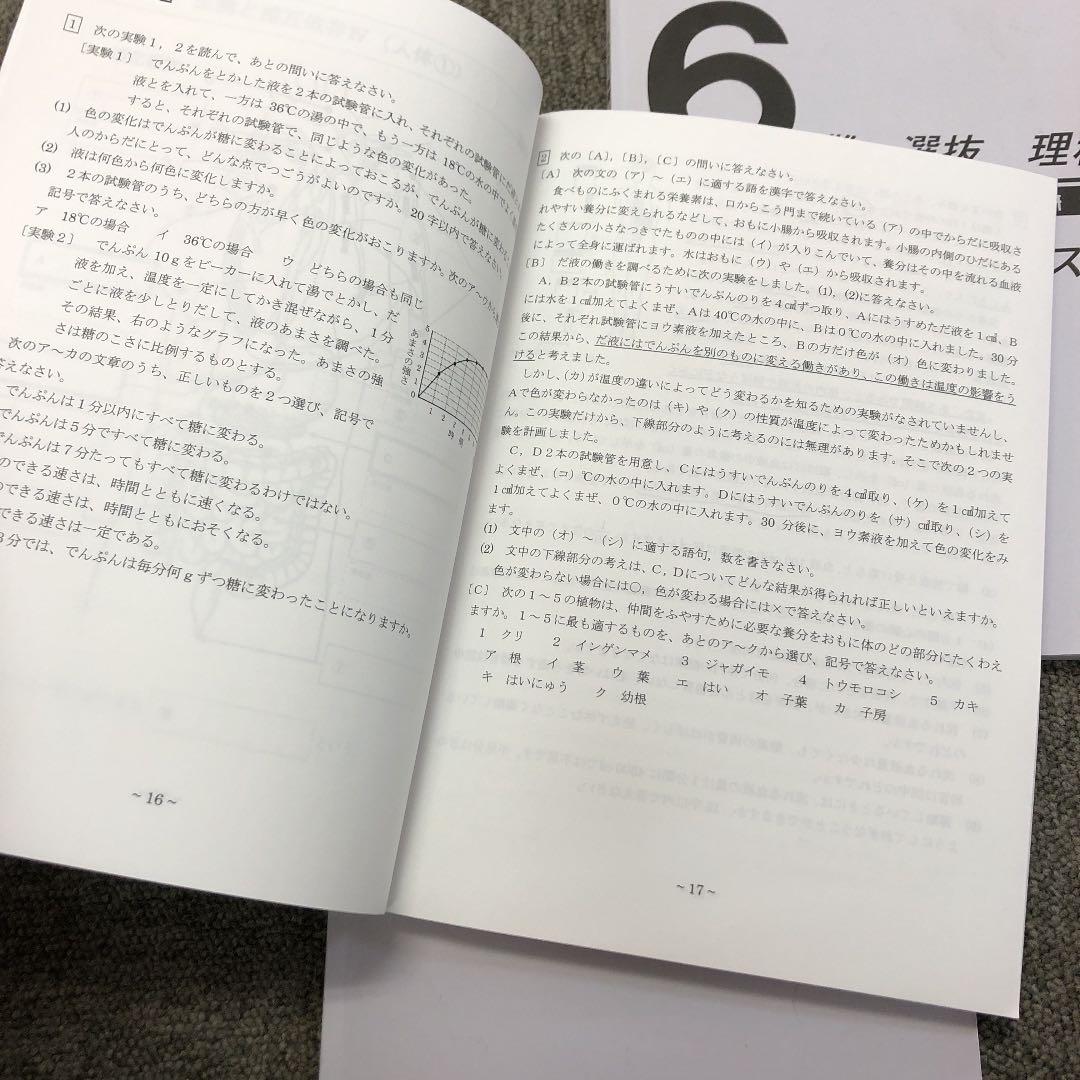 1 次の実験1，2を読んで、あとの問いに答えなさい。
〔実験1〕 でんぷんをとかした液を2本の試験管に入れ、それぞれの試験管にだ
液とを入れて、一方は 36℃の湯の中で、もう一方は 18℃の水の中で
すると、それぞれの試験管で、同じような色の変化があった。
(1) 色の変化はでんぷんが糖に変わることによっておこるが、でんぷんが糖に変わ
人のからだにとって、どんな点でつごうがよいのですか。20字以内で答えなさい。
(2) 液は何色から何色に変化しますか。
(3) 2本の試験管のうち、どちらの方が早く色の変化がおこりますか。次のア～ウから
記号で答えなさい。
ア 18℃の場合 イ 36℃の場合 ウ どちらの場合も同じ
〔実験2〕 でんぷん 10gをビーカーに入れて湯でとかし、だ
液を加え、温度を一定にしてかき混ぜながら、1分
ごとに液を少しとりだして、液のあまさを調べた。
その結果、右のようなグラフになった。あまさの強
さは糖のこさに比例するものとする。
あまさの強さ
5
4
3
2
1
0
1 2
時間
次のア～カの文章のうち、正しいものを2つ選び、記号で
答えなさい。
でんぷんは1分以内にすべて糖に変わる。
でんぷんは5分ですべて糖に変わる。
でんぷんは7分たってもすべて糖に変わるわけではない。
のできる速さは、時間とともに速くなる。
のできる速さは、時間とともにおそくなる。
できる速さは一定である。
3分では、でんぷんは毎分何gずつ糖に変わったことになりますか。
～16～
2 次の〔A〕，〔B〕，〔C〕の問いに答えなさい。
〔A〕 次の文の（ア）～（エ）に適する語を漢字で答えなさい。
食べものにふくまれる栄養素は、口からこう門まで続いている（ア）の中でからだに吸収さ
れやすい養分に変えられるなどして、おもに小腸から吸収されます。小腸の内側のひだにある
たくさんの小さなつきでたものの中には（イ）が入りこんでいて、養分はその中を流れる血液
によって全身に運ばれます。水はおもに（ウ）や（エ）から吸収されます。
〔B〕 だ液の働きを調べるために次の実験をしました。(1)，(2)に答えなさい。
A，B2本の試験管にうすいでんぷんのりを4㎤ずつ取り、Aにはうすめただ液を1㎤、B
には水を1㎤加えてよくまぜ、Aは40℃の水の中に、Bは0℃の水の中に入れました。30分
後に、それぞれ試験管にヨウ素液を加えたところ、Bの方だけ色が（オ）色に変わりました。
この結果から、だ液にはでんぷんを別のものに変える働きがあり、この働きは温度の影響をう
けると考えました。
しかし、（カ）が温度の違いによってどう変わるかを知るための実験がなされていませんし、
Aで色が変わらなかったのは（キ）や（ク）の性質が温度によって変わったためかもしれませ
ん。この実験だけから、下線部分のように考えるのには無理があります。そこで次の2つの実
験を計画しました。
C，D2本の試験管を用意し、Cにはうすいでんぷんのりを4㎤取り、（ケ）を1㎤加えて
よくまぜ、（コ）℃の水の中に入れます。Dにはうすいでんぷんのりを（サ）㎤取り、（シ）を
1㎤加えてよくまぜ、0℃の水の中に入れます。30分後に、ヨウ素液を加えて色の変化をみ
ます。
(1) 文中の（オ）～（シ）に適する語句，数を書きなさい。
(2) 文中の下線部分の考えは、C，Dについてどんな結果が得られれば正しいといえますか。
色が変わらない場合には○，色が変わる場合には×で答えなさい。
〔C〕 次の1～5の植物は、仲間をふやすために必要な養分をおもに体のどの部分にたくわえ
ますか。1～5に最も適するものを、あとのア～クから選び、記号で答えなさい。
1 クリ 2 インゲンマメ 3 ジャガイモ 4 トウモロコシ 5 カキ
ア 根 イ 茎 ウ 葉 エ はい オ 子葉 カ 子房
キ はいにゅう ク 幼根
～17～
6
選抜 理
ス